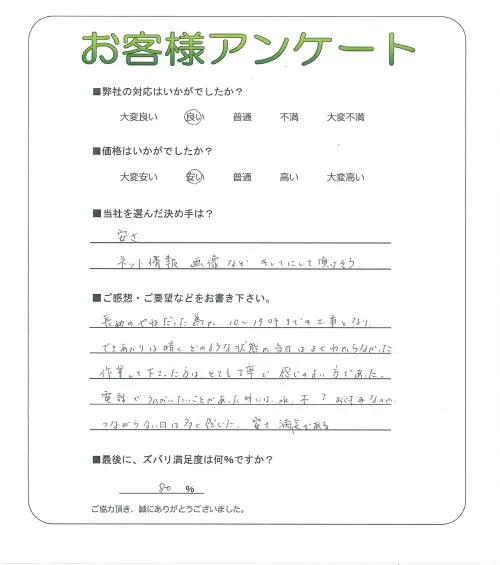 お客様アンケート
■弊社の対応はいかがでしたか？
大変良い 良い 普通 不満 大変不満
■価格はいかがでしたか？
大変安い 安い 普通 高い 大変高い
■当社を選んだ決め手は？
安さ
ネット情報 画像など きれいにして頂けそう
■ご感想・ご要望などをお書き下さい。
長めのやねだった為か、10〜19時までの工事となり
できあがりは暗く どのような状態か当日はよくわからなかった
作業して下さった方は、とても丁寧で 感じのよい方であった。
電話でうかがいたいことがあった時には、水、木、? お休みなのか
つながらない日は多く感じた。 安さ 満足である
■最後に、ズバリ満足度は何％ですか？
80 ％
ご協力頂き、誠にありがとうございました。